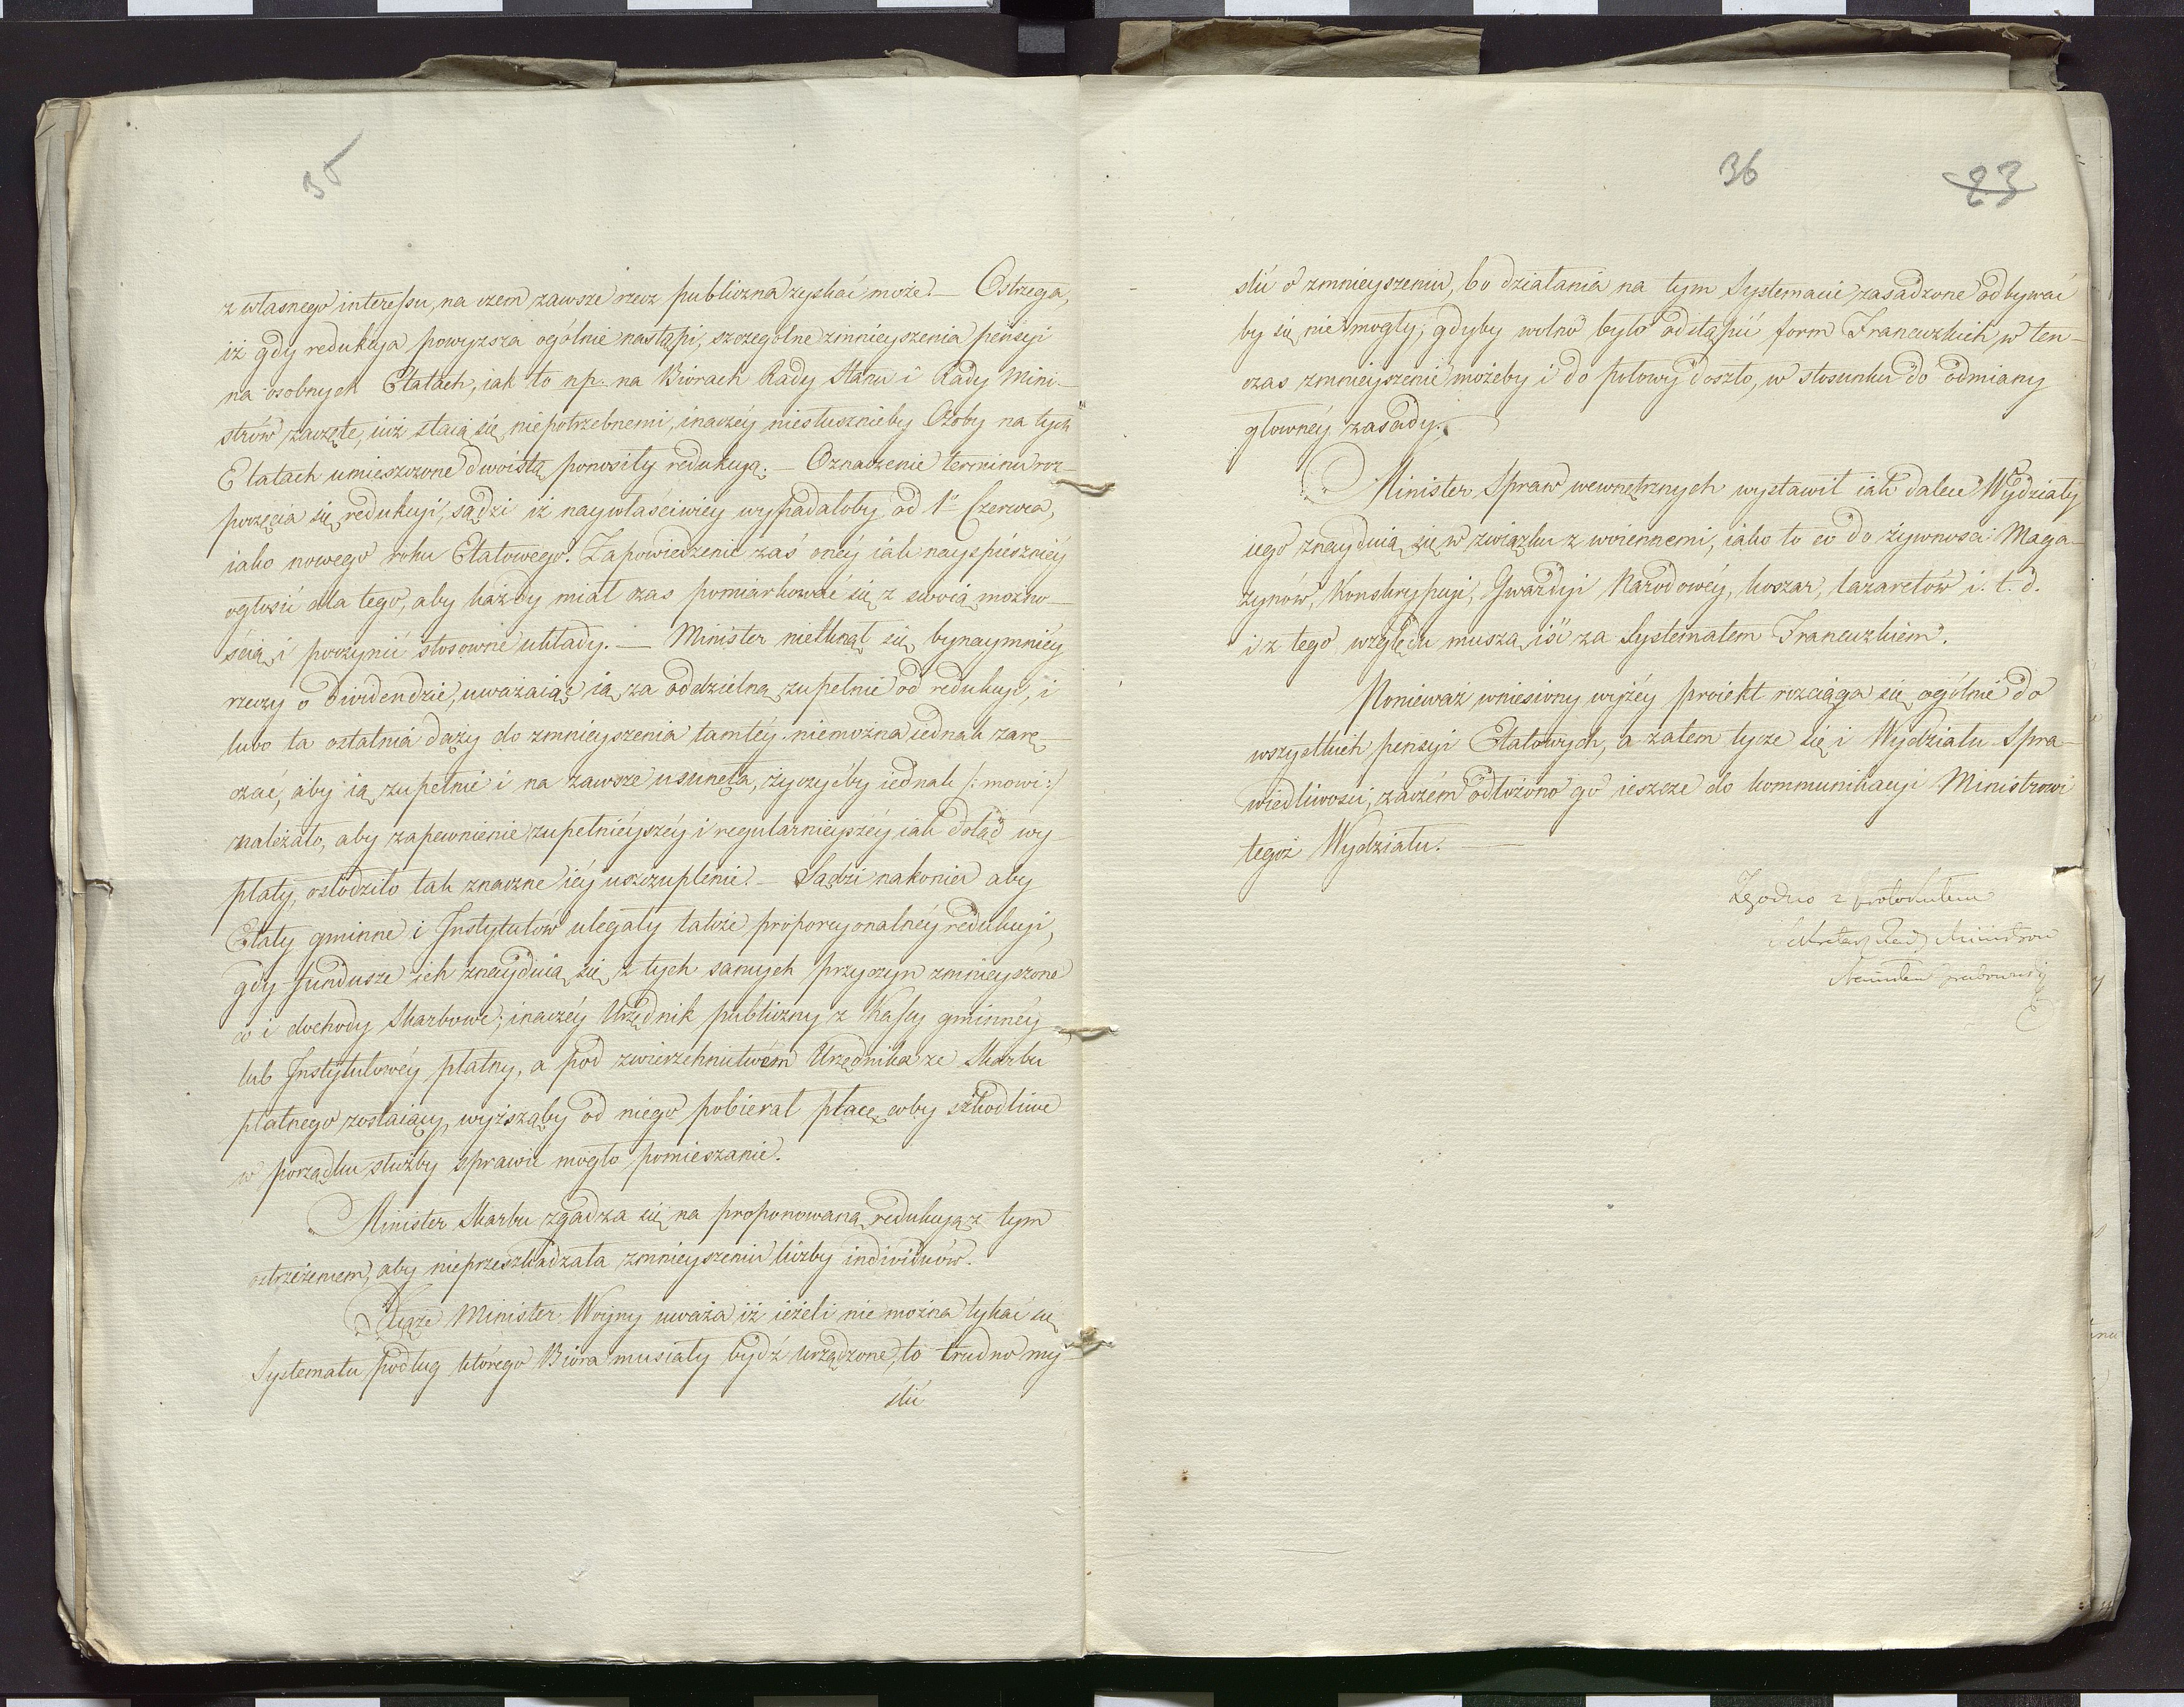 35
z własnego interessu, na czem zawsze rzecz publiczna zyskać może. — Ostrzega,
iż gdy redukcya powyższa ogólnie nastąpi, szczególne zmnieyszenia pensyi
na osobnych Etatach, iak to np. na Biórach Rady Stanu i Rady Mini-
strów zaczęte, iuż staią się niepotrzebnemi, inaczéy niesłusznieby Osoby na tych
Etatach umieszczone dwoistą ponosiły redukcyą. — Oznaczenie terminu roz-
poczęcia się redukcyi, sądzi iż naywłaściwiéy wypadałoby od 1o Czerwca,
iako nowego roku Etatowego. Zapowiedzenie zaś onéy iak nayspieszniéy
ogłosić dla tego, aby każdy miał czas pomiarkować się z swoią możno-
ścią i poczynić stosowne układy. — Minister nietknął się bynaymniéy
rzeczy o dividendzie, uważaiąc ią za oddzielną zupełnie od redukcyi, i
lubo ta ostatnia dąży do zmnieyszenia tamtéy niemożna iednak zarę-
czać, aby ią zupełnie i na zawsze usunęła, życzyćby iednak /: mowi :/
należało, aby zapewnienie zupełnieyszéy i regularnieyszéy iak dotąd wy-
płaty, osłodziło tak znaczne iéy uszczuplenie. — Sądzi nakoniec aby
Etaty gminne i Instytutów ulegały także proporcyonalnéy redukcyi,
gdy fundusze ich znayduią się z tych samych przyczyn zmnieyszone
co i dochody Skarbowe; inaczéy Urzędnik publiczny z Kassy gminnéy
lub Instytutowéy płatny, a pod zwierzchnictwem Urzędnika ze Skarbu
płatnego zostaiący, wyższąby od niego pobierał płacę, coby szkodliwe
w porządku służby sprawić mogło pomieszanie.
Minister Skarbu zgadza się na proponowaną redukcyą z tym
ostrzeżeniem, aby nieprzeszkadzała zmnieyszeniu liczby individuów.
Xiąże Minister Woyny uważa iż ieżeli nie można tykać się
Systematu podług którego Bióra musiały bydź urządzone, to trudno my-
ślić
36
23
ślić o zmnieyszeniu, bo działania na tym Systemacie zasadzone odbywać
by się nie mogły; gdyby wolno było odstąpić form Francuzkich, w ten-
czas zmnieyszenie możeby i do połowy doszło, w stosunku do odmiany
głownéy zasady.
Minister Spraw wewnętrznych wystawił iak dalece Wydziały
iego znayduią się w związku z woiennemi, iako to co do żywności Maga-
zynów, Konskrypcyi, Gwardyi Narodowéy, koszar, lazaretów i. t. d.
i z tego względu muszą iść za Systematem Francuzkiem.
Ponieważ wniesiony wyżéy proiekt rozciąga się ogólnie do
wszystkich pensyi Etatowych, a zatem tycze się i Wydziału Spra-
wiedliwości, zaczém odłożono go ieszcze do kommunikacyi Ministrowi
tegoż Wydziału. —
Zgodno z protokułem
Sekretarz Rady Ministrow